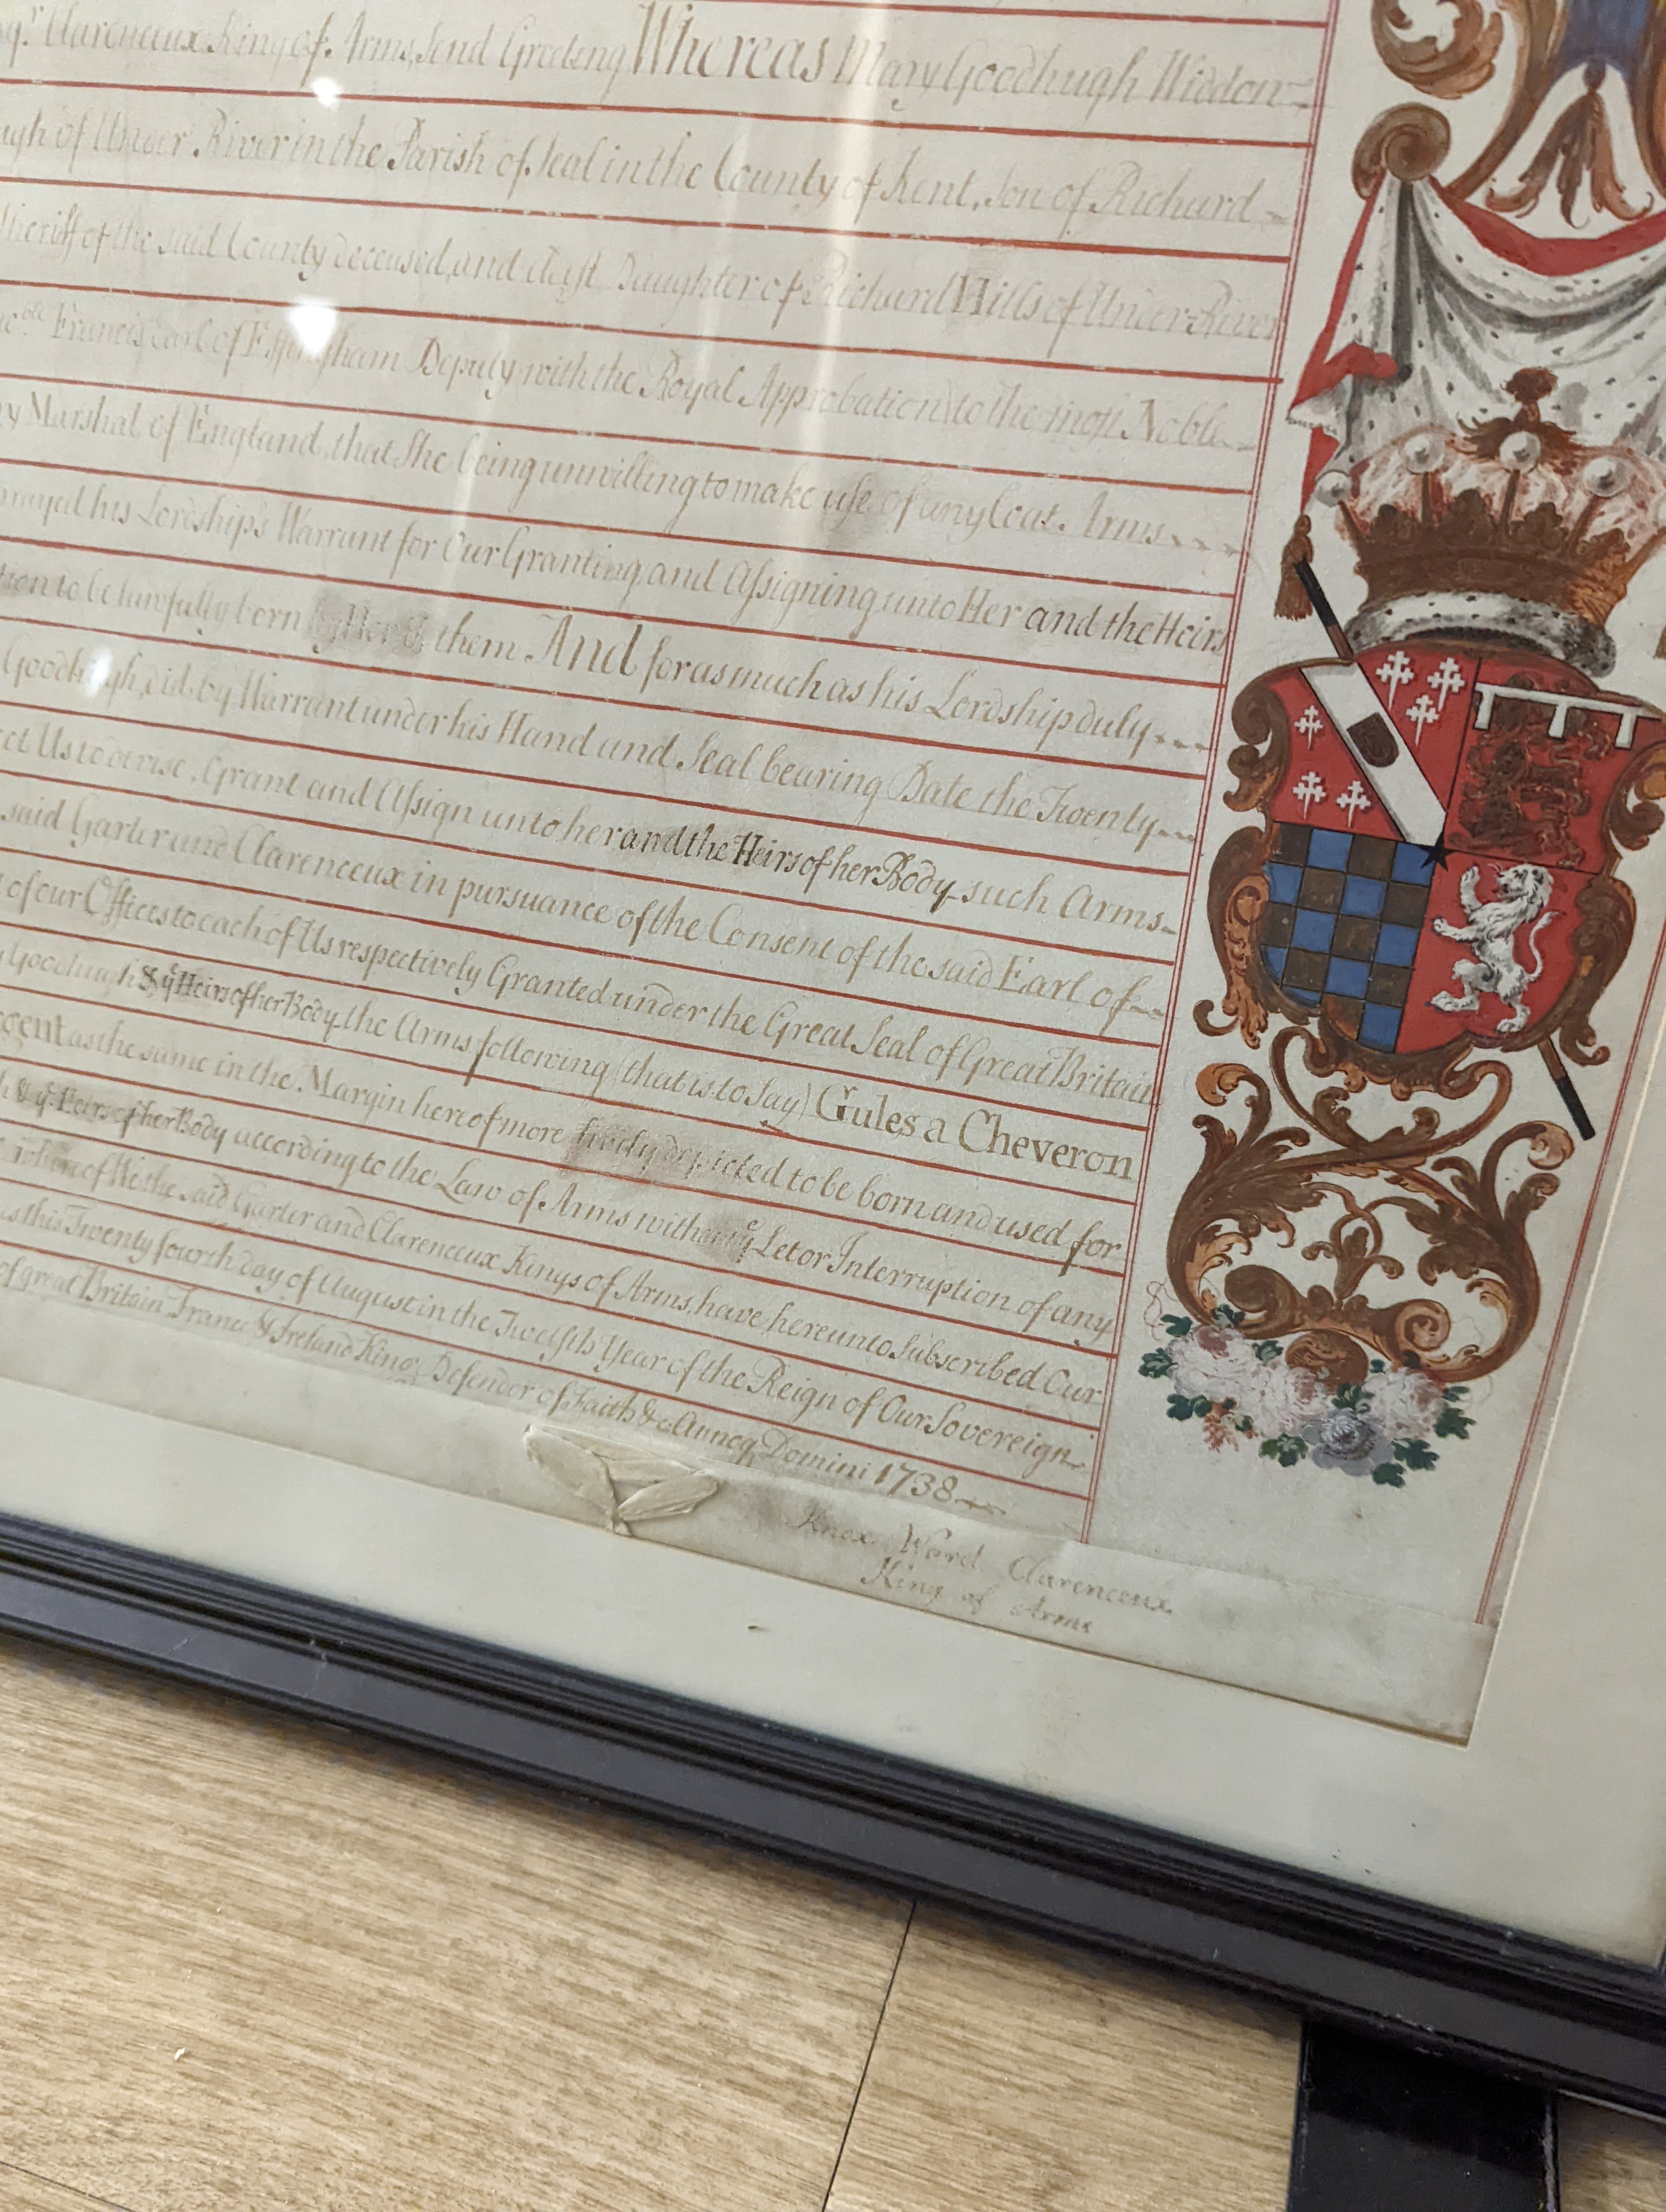 Clarenceux King of Arms, Send Greeting Whereas Mary Goodhugh Widdow
of Under River in the Parish of Seal in the County of Kent, Son of Richard
Sheriff of the said County deceased, and Daughter of Richard Hills of Under-River
Francis Earl of Effingham Deputy with the Royal Approbation to the most Noble
Marshal of England, that She being unwilling to make use of any Coat Arms
prayed his Lordship's Warrant for Our Granting and Assigning unto Her and the Heirs
to be lawfully born by Her & them And forasmuch as his Lordship duly
Goodhugh, did by Warrant under his Hand and Seal bearing Date the Twenty
Us to devise, Grant and Assign unto her and the Heirs of her Body such Arms
said Garter and Clarenceux in pursuance of the Consent of the said Earl of
of our Offices to each of Us respectively Granted under the Great Seal of Great Britain
Goodhugh & yͤ Heirs of her Body the Arms following (that is to Say) Gules a Cheveron
as the same in the Margin hereof more depicted to be born and used for
& yͤ Heirs of her Body according to the Law of Arms without yͤ Let or Interruption of any
whereof We the said Garter and Clarenceux Kings of Arms, have hereunto Subscribed Our
this Twenty fourth day of August in the Twelfth Year of the Reign of Our Sovereign
of great Britain France & Ireland King, Defender of Faith &c Annoq Domini 1738
Knox Ward Clarenceux
King of Arms